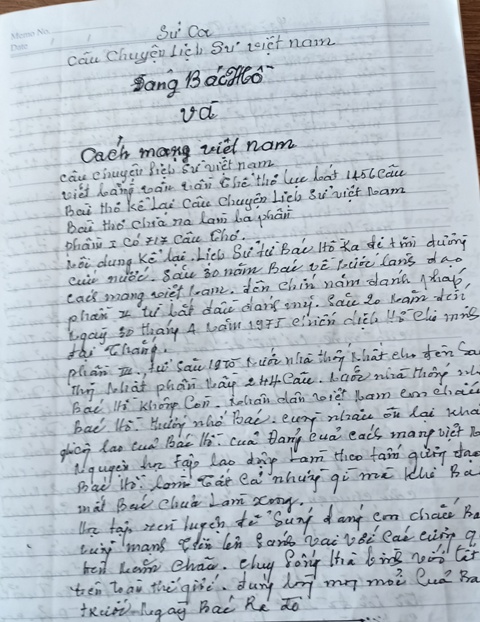 Memo No.
Date / /
Sử Ca
Câu Chuyện Lịch Sử việt nam
Đảng Bác Hồ
và
Cách mạng việt nam
Câu chuyện lịch sử việt nam
viết bằng văn vần thể thơ lục bát 1456 câu
Bài thơ kể lại câu chuyện Lịch Sử việt nam
Bài thơ chia ra làm ba phần
phần I có 717 câu thơ.
Nội dung kể lại. Lịch Sử từ Bác Hồ Ra đi tìm đường
cứu nước. Sau 30 năm Bác về nước lãnh đạo
cách mạng việt nam. đến chín năm đánh pháp
phần II từ bắt đầu đánh mỹ. Sau 20 năm đến
ngày 30 tháng 4 năm 1975 chiến dịch Hồ Chí minh
đại thắng.
phần III. từ sau 1975 nước nhà thống nhất cho đến
phần này 244 câu. nước nhà thống
Bác Hồ không còn. nhân dân việt nam con cháu
Bác Hồ tưởng nhớ Bác. cùng nhau ôn lại
công lao của Bác Hồ của Đảng của cách mạng việt
Nguyện học tập lao động làm theo tấm gương
Bác Hồ. làm tất cả những gì mà khi
mất Bác chưa làm xong.
học tập rèn luyện để xứng đáng con cháu
vững mạnh tiến lên sánh vai với các cường
trên năm châu. chung sống hòa bình với tất
trên toàn thế giới. đúng lòng mong mỏi của
trước ngày Bác Ra đi